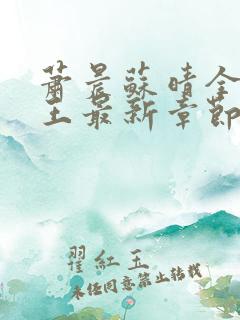 蕭晨蘇晴全
王最新章節
翟紅玉
未經同意禁止轉載